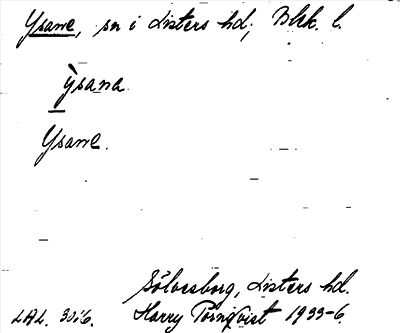 Ysane, sn i Listers hd, Blek. l.
ỳsana
Ysane.
Sölvesborg, Listers hd.
LAL. 3026. Harry Törnqvist 1933-6.